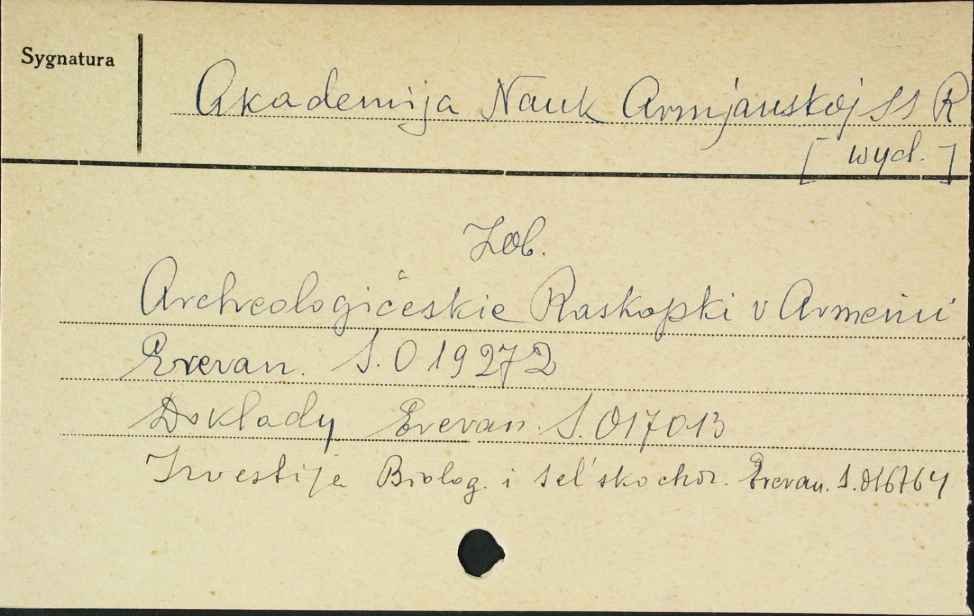 Sygnatura
Akademija Nauk Armjanskoj SSR
[wyd.]
Zob.
Archeologičeskie Raskopki v Armenii
Erevan. S.O19272
Doklady Erevan. S.O17013
Izvestija Biolog. i sel'skochoz. Erevan. S.O16764